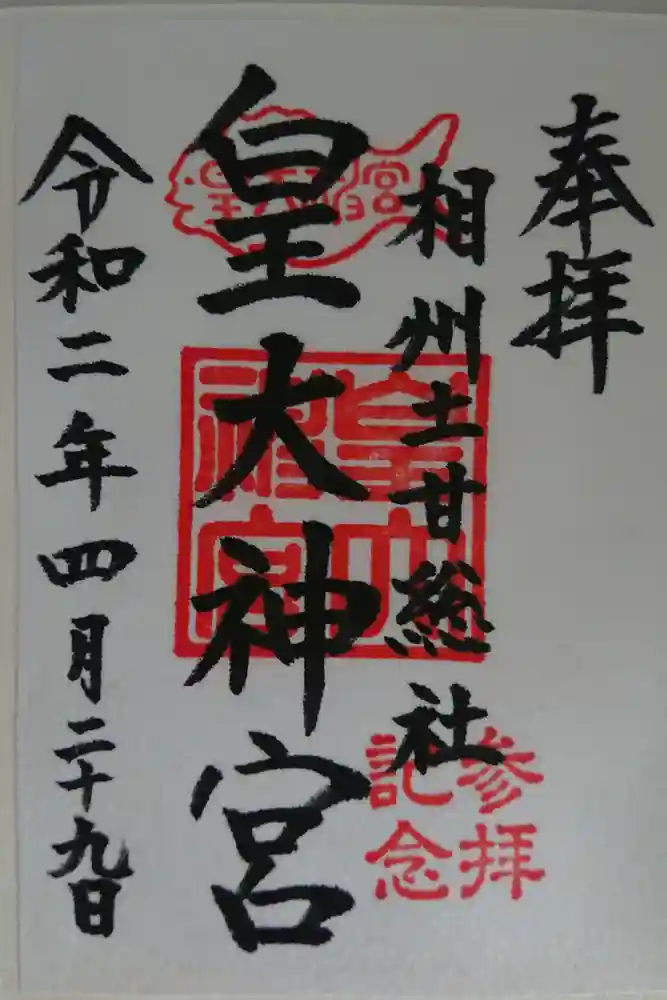 奉拝
相州土甘総社
皇大神宮
令和二年四月二十九日
皇大神宮
皇大神宮
参拝
記念